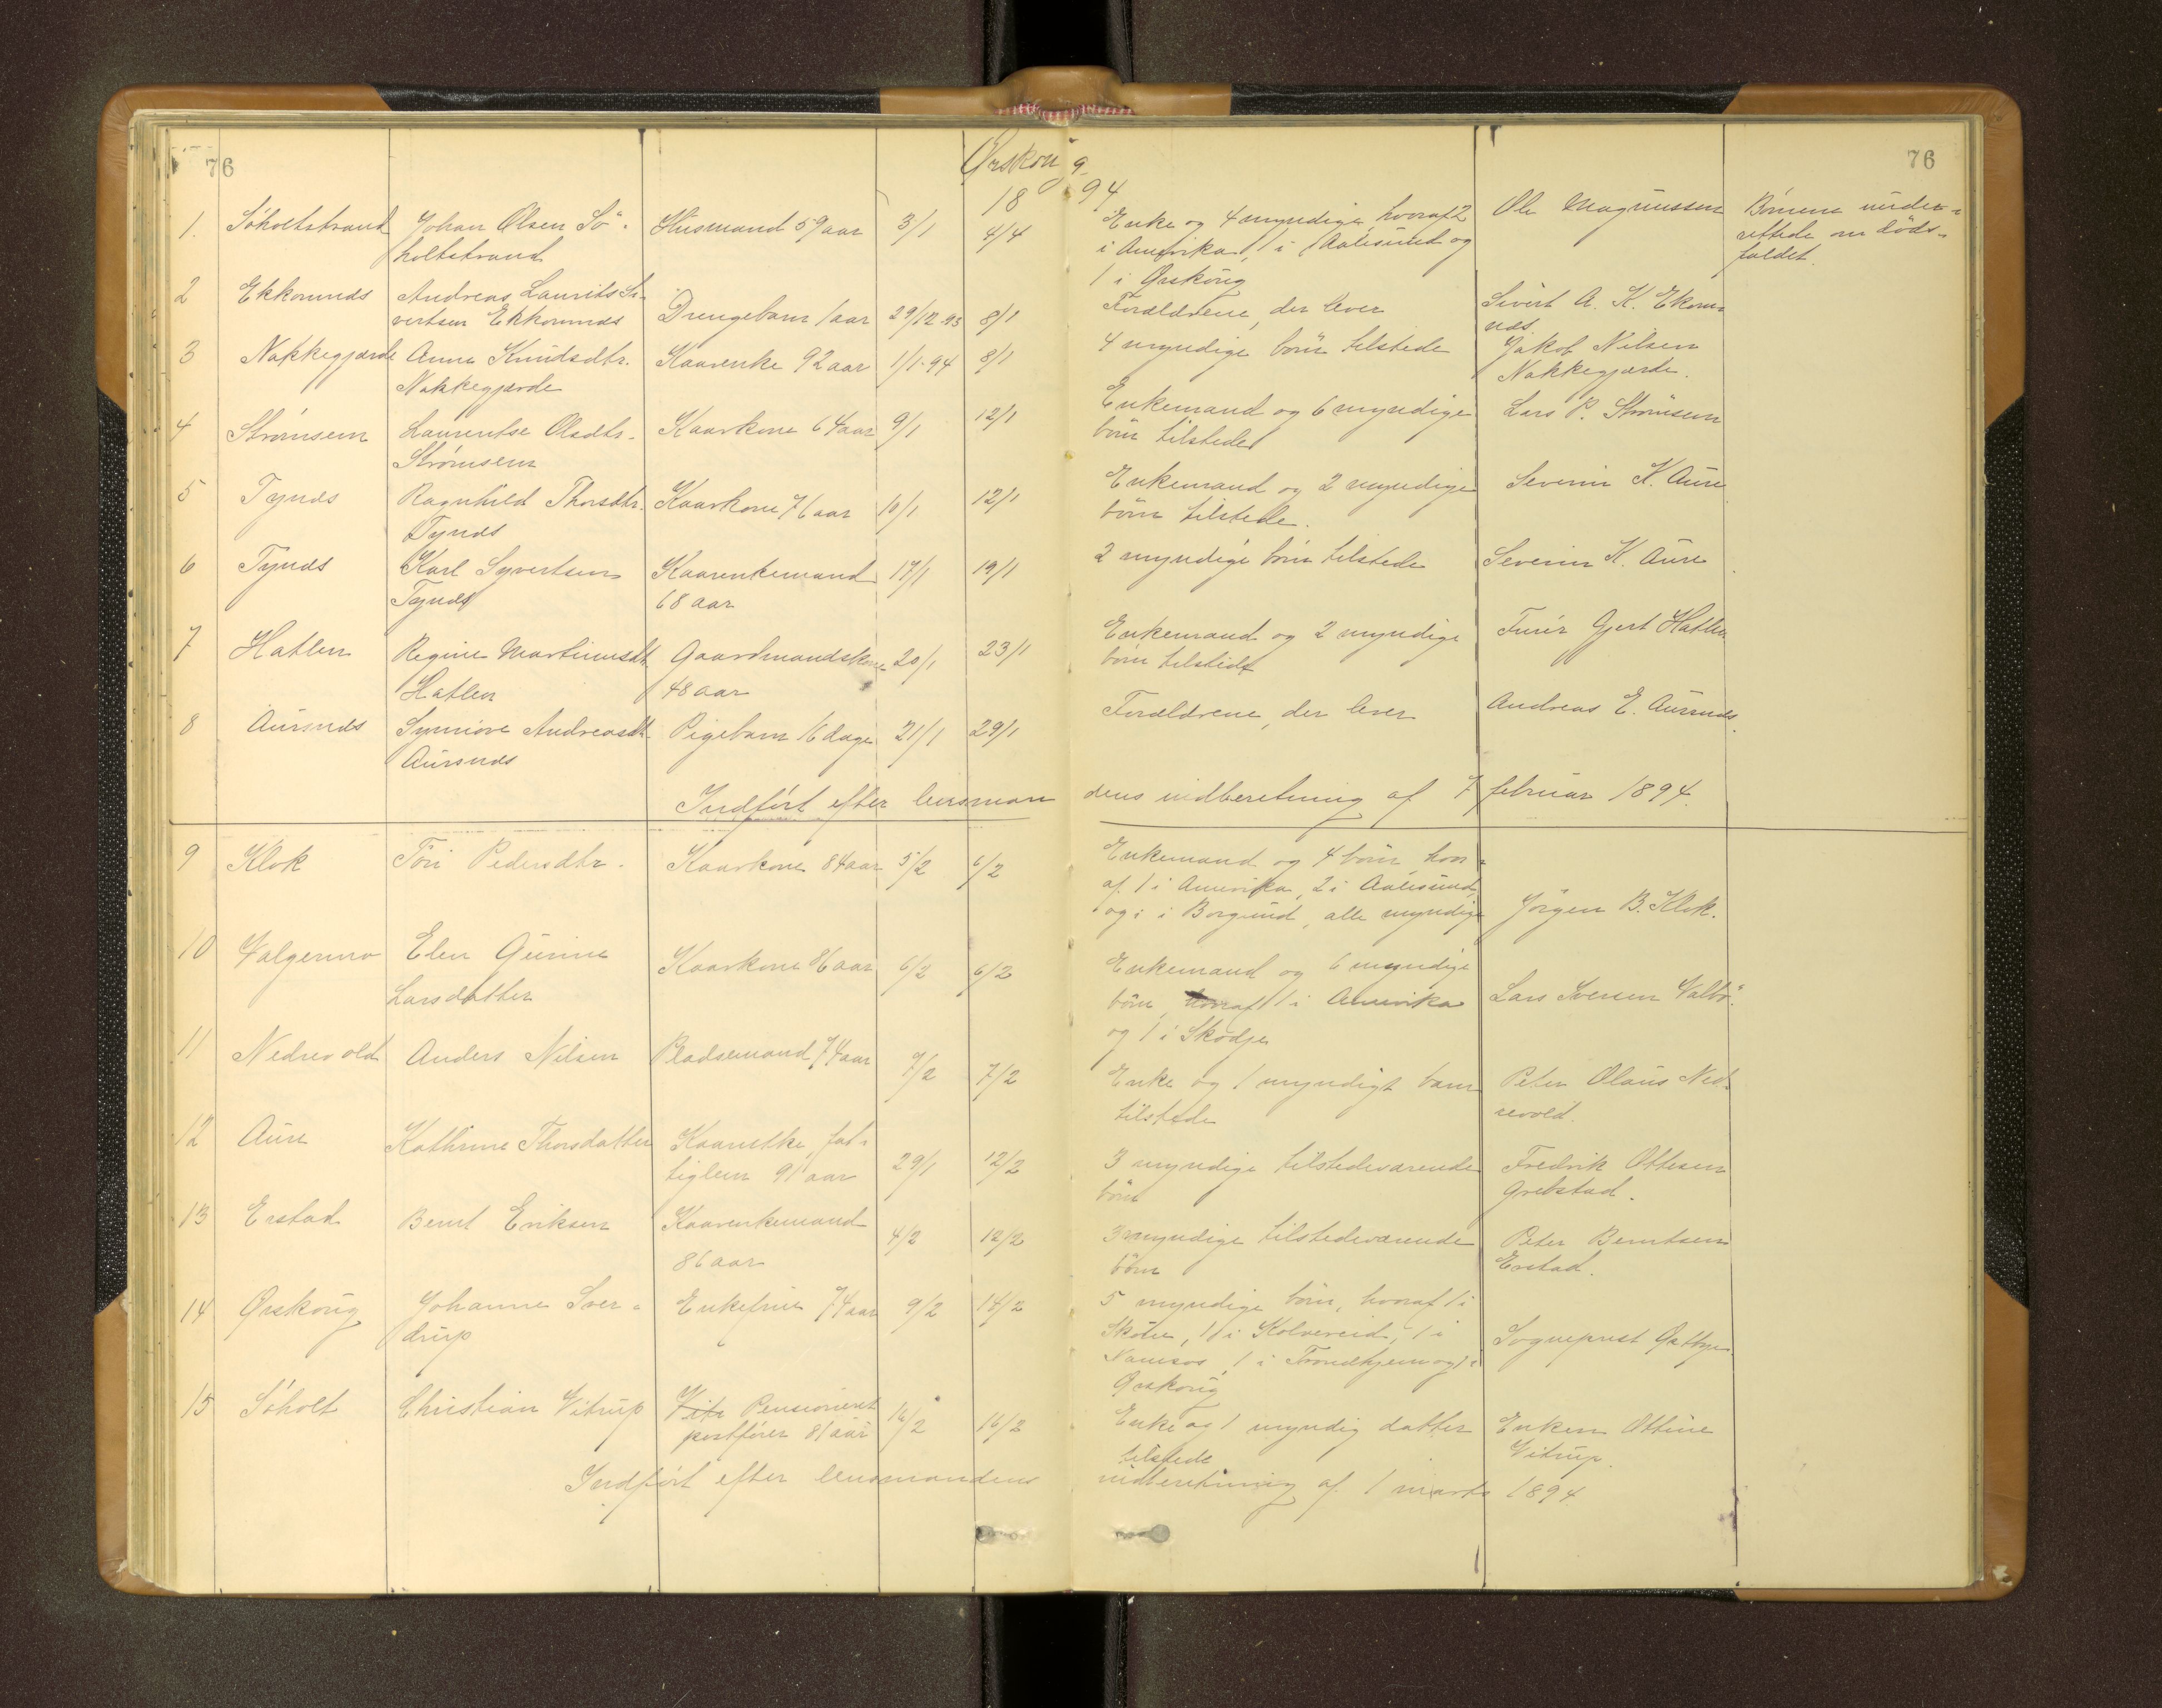 76
Ørskoug
76
18 94
1. Søholtstrand Johan Olsen Sø- Husmand 59 aar 3/1 4/4 Enke og 4 myndige, hvoraf 2 Ole Magnussen Børnene under-
holtstrand i Amerika, 1 i Aalesund og rettede om døds-
1 i Ørskoug faldet.
2 Ekkornnes Andreas Laurits Si- Drengebarn 1 aar 29/12-93 8/1 Forældrene, der lever Sivert A. K. Ekorn-
vertsen Ekkornnes næs.
3 Nakkegjærde Anna Knudsdtr. Kaarenke 92 aar 1/1-94 8/1 4 myndige børn tilstede Jakob Nilsen
Nakkegjærde Nakkegjærde.
4 Strømsem Laurentse Olsdtr. Kaarkone 64 aar 9/1 12/1 Enkemand og 6 myndige Lars P. Strømsem
Strømsem børn tilstede
5 Tynes Ragnhild Thorsdtr. Kaarkone 76 aar 10/1 12/1 Enkemand og 2 myndige Severin K. Aure
Tynes børn tilstede.
6 Tynes Karl Syvertsen Kaarenkemand 17/1 19/1 2 myndige børn tilstede Severin K. Aure
Tynes 68 aar
7 Hatlen Regine Martinusdt. Gaardmandskone 20/1 23/1 Enkemand og 2 myndige Furér Gjert Hatlen
Hatlen 48 aar børn tilstede
8 Aursnes Synnøve Andreasdt. Pigebarn 16 dage 21/1 29/1 Forældrene, der lever Andreas E. Aursnes.
Aursnes
Indført efter lensmandens indberetning af 7 februar 1894.
9 Klok Tori Pedersdtr. Kaarkone 84 aar 5/2 6/2 Enkemand og 4 børn, hvor-
af 1 i Amerika, 2 i Aalesund,
og 1 i Borgund, alle myndige Jørgen B. Klok.
10 Valgermo Elen Gurine Kaarkone 86 aar 6/2 6/2 Enkemand og 6 myndige
Larsdatter børn, hvoraf 1 i Amerika Lars Iversen Valbø.
og 1 i Skodje
11 Nedrevold Anders Nilsen Pladsemand 74 aar 7/2 7/2 Enke og 1 myndigt barn Peter Olaus Ned-
tilstede revold.
12 Aure Kathrine Thorsdatter Kaarenke, fat-
tiglem 91 aar 29/1 12/2 3 myndige tilstedeværende Fredrik Ottesen
børn Grebstad.
13 Erstad Bernt Eriksen Kaarenkemand 4/2 12/2 3 myndige tilstedeværende Peter Berntsen
86 aar børn Erstad.
14 Ørskoug Johanne Sver- Enkefrue 74 aar 9/2 14/2 5 myndige børn, hvoraf 1 i
drup 1 i Kolvereid, 1 i Sogneprest
Namsos, 1 i Trondhjem og 1 i
Ørskoug
15 Søholt Christian Vitrup Pensioneret 16/2 16/2 Enke og 1 myndig datter Enken Ottine
postfører 81 aar tilstede Vitrup.
Indført efter lensmandens indberetning af 1 marts 1894